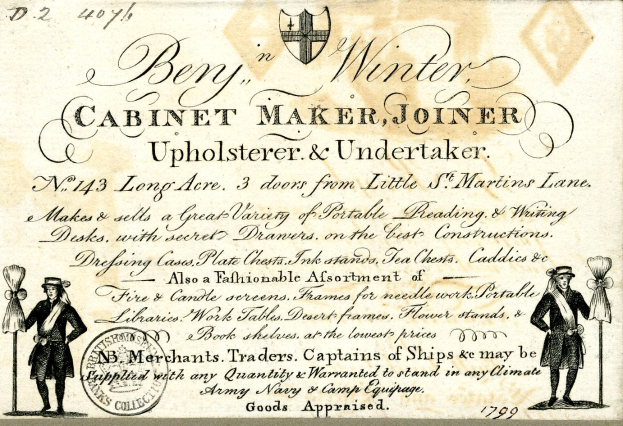 D 2 4076
Benj,,in Winter,
CABINET MAKER, JOINER
Upholsterer. & Undertaker.
No. 143 Long Acre. 3 doors from Little St. Martins Lane.
Makes & sells a Great Variety of Portable Reading & Writing
Desks, with secret Drawers, on the best Constructions.
Dreſsing Cases, Plate Chests, Ink stands, Tea Chests, Caddies &c
Also a Faſhionable Aſsortment of
Fire & Candle screens. Frames for needle work. Portable
Libraries. Work Tables. Desert frames. Flower stands. &
Book shelves. at the lowest prices
NB. Merchants. Traders. Captains of Ships &c may be
Supplied with any Quantity & Warranted to stand in any Climate
Army Navy & Camp Equipage.
Goods Appraised.
1799
BRITISH
COLLECTION